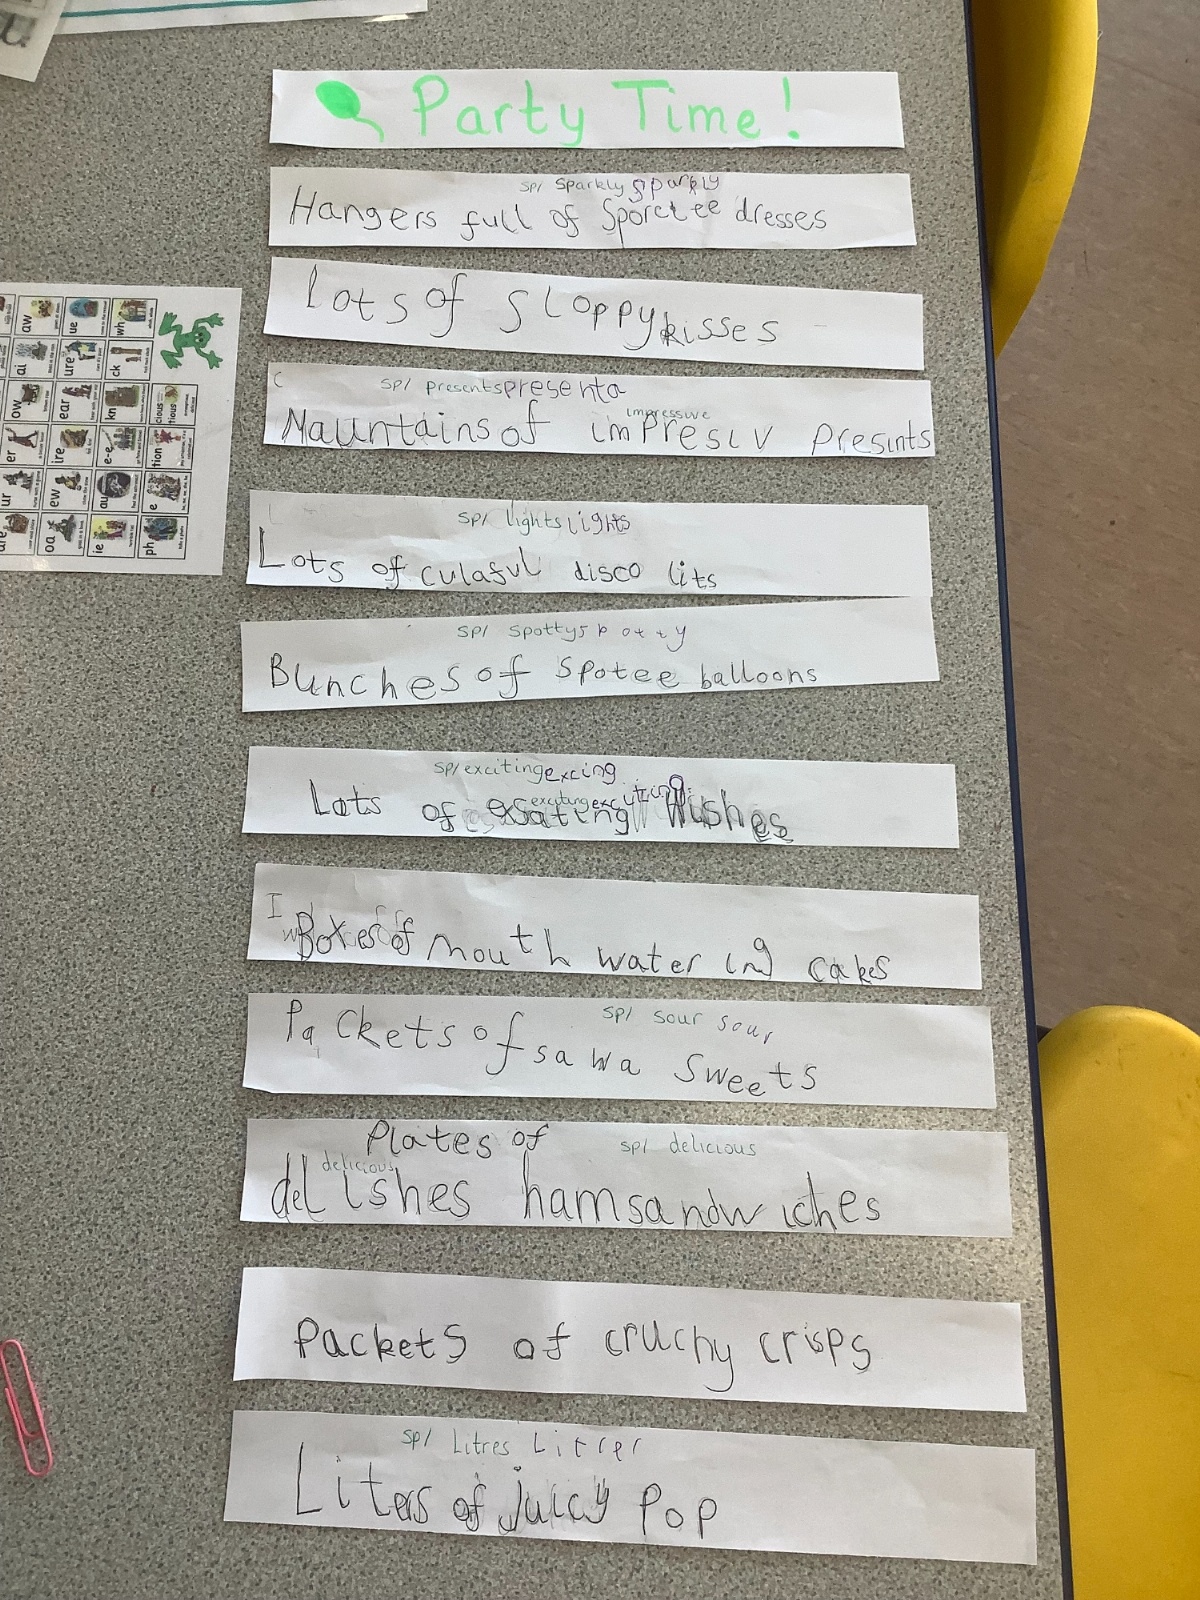 Party Time!
sp/ sparkly sparkly
Hangers full of Sporclee dresses
Lots of sloppy kisses
c
sp/ presents presenta
impressive
Mauntains of impresiv presints
sp/ lights lights
Lots of culaful disco lits
sp/ spotty spotty
Bunches of spotee balloons
sp/ exciting excing
exciting excyting
Lots of esating Wishes
I
Boxes of mouth water ing cakes
sp/ sour sour
Packets of sawa sweets
Plates of sp/ delicious
delicious
delishes hamsandwiches
Packets of cruchy crisps
sp/ Litres Litrer
Liters of juicy pop
aw
ue
wh
ai
ure
ck
ow
ear
kn
cious
tious
er
ire
e-e
tion
ur
ew
au
e
are
oa
ie
ph